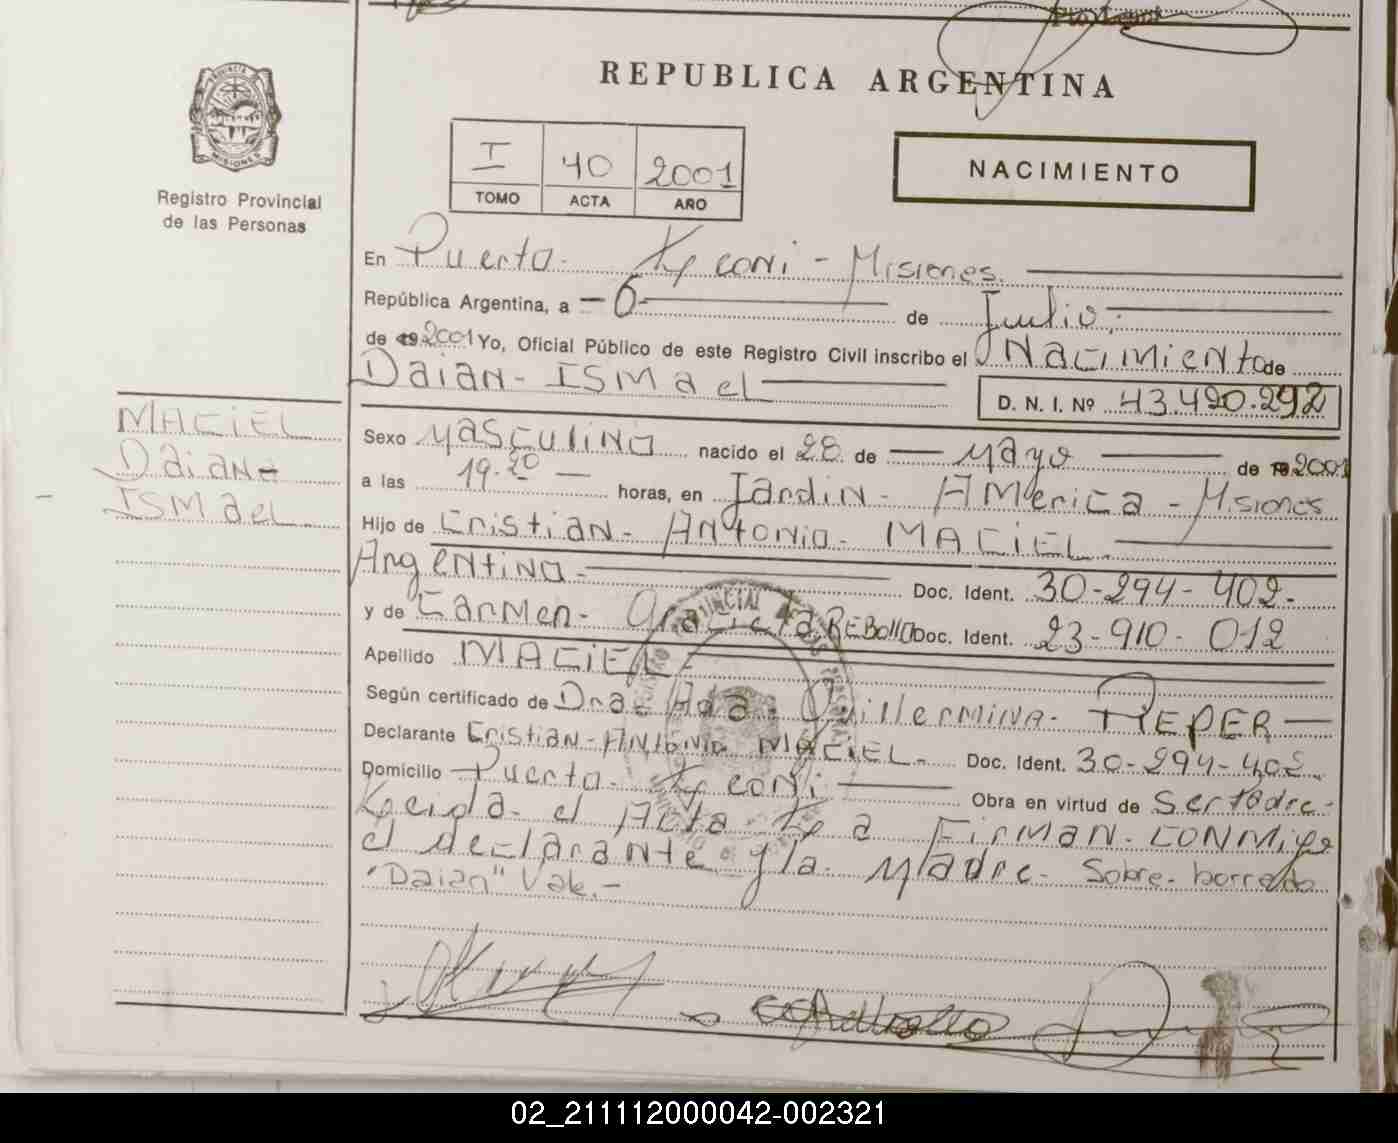 REPUBLICA ARGENTINA
PROVINCIA DE MISIONES
Registro Provincial
de las Personas
I 40 2001
TOMO ACTA AÑO
NACIMIENTO
En Puerto Leoni - Misiones.
República Argentina, a - 6 - de Julio,
de 19 2001 Yo, Oficial Público de este Registro Civil inscribo el Nacimiento de
Daian - Ismael
D. N. I. Nº 43.490.292
MACIEL
Daian
ISMael
Sexo Masculino nacido el 28 de Mayo de 19 2001
a las 19.20 horas, en Jardin - America - Misiones
Hijo de Cristian - Antonio - MACIEL.
Argentino - Doc. Ident. 30-294-402.
y de Carmen - Graciela REBOllO Doc. Ident. 23-910-012
Apellido MACIEL -
Según certificado de Dra. Ada. Guillermina - REPER
Declarante Cristian - Antonio MACIEL. Doc. Ident. 30-294-402.
Domicilio Puerto - Leoni Obra en virtud de Ser Padre -
Leida - el Acta - La Firman - conmigo
el declarante y la Madre - Sobre-borrado
"Daian" Vale. -
02_211112000042-002321